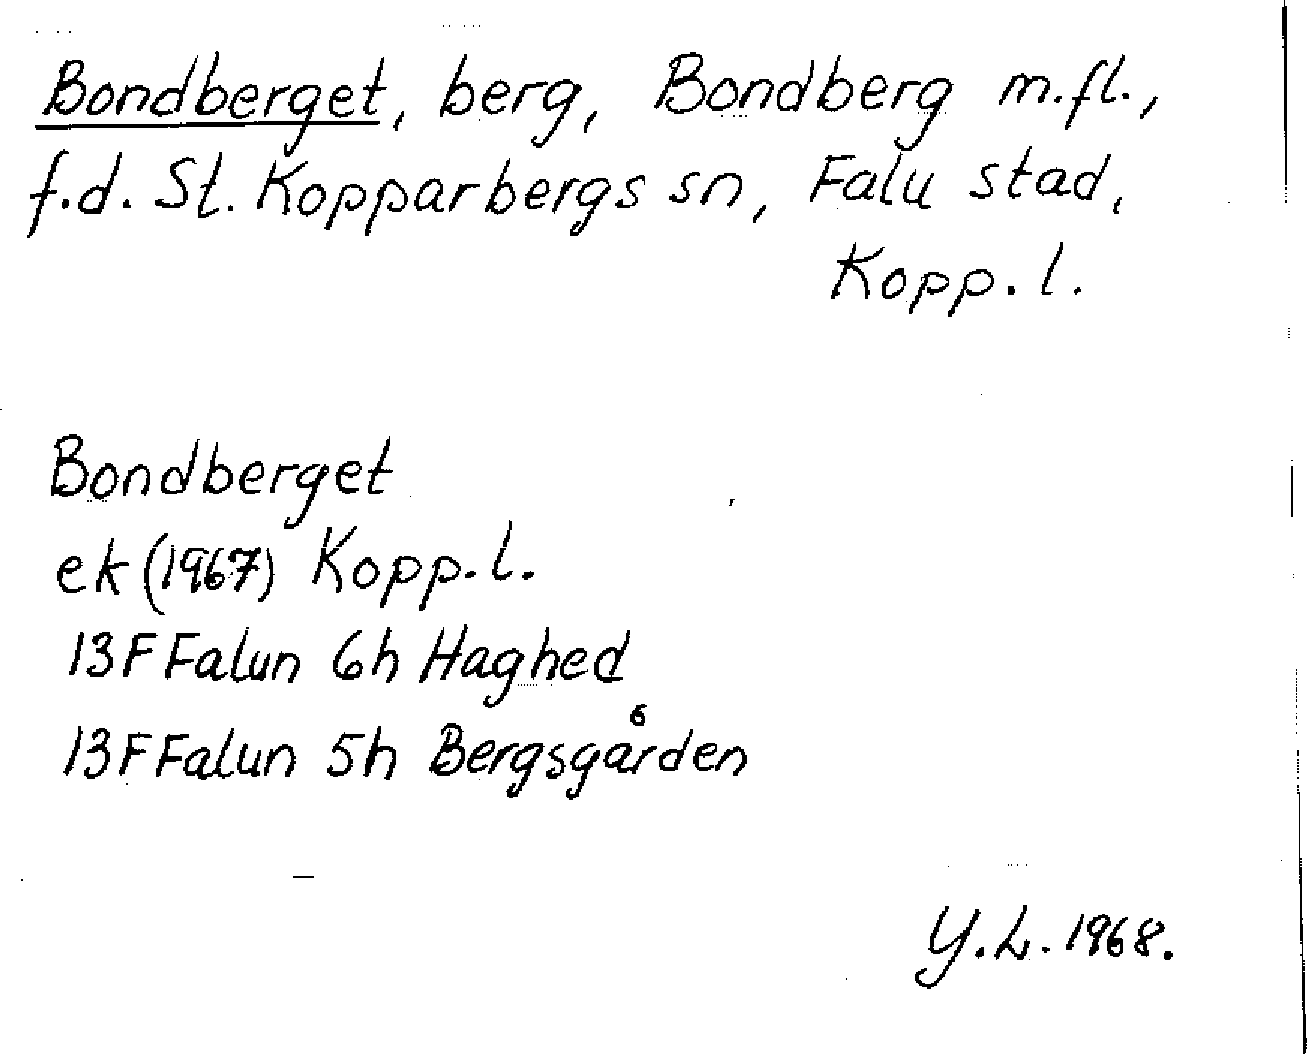 Bondberget, berg, Bondberg m.fl.,
f.d. St. Kopparbergs sn, Falu stad,
Kopp. l.
Bondberget
ek (1967) Kopp. l.
13F Falun 6h Haghed
13F Falun 5h Bergsgården
Y.L. 1968.